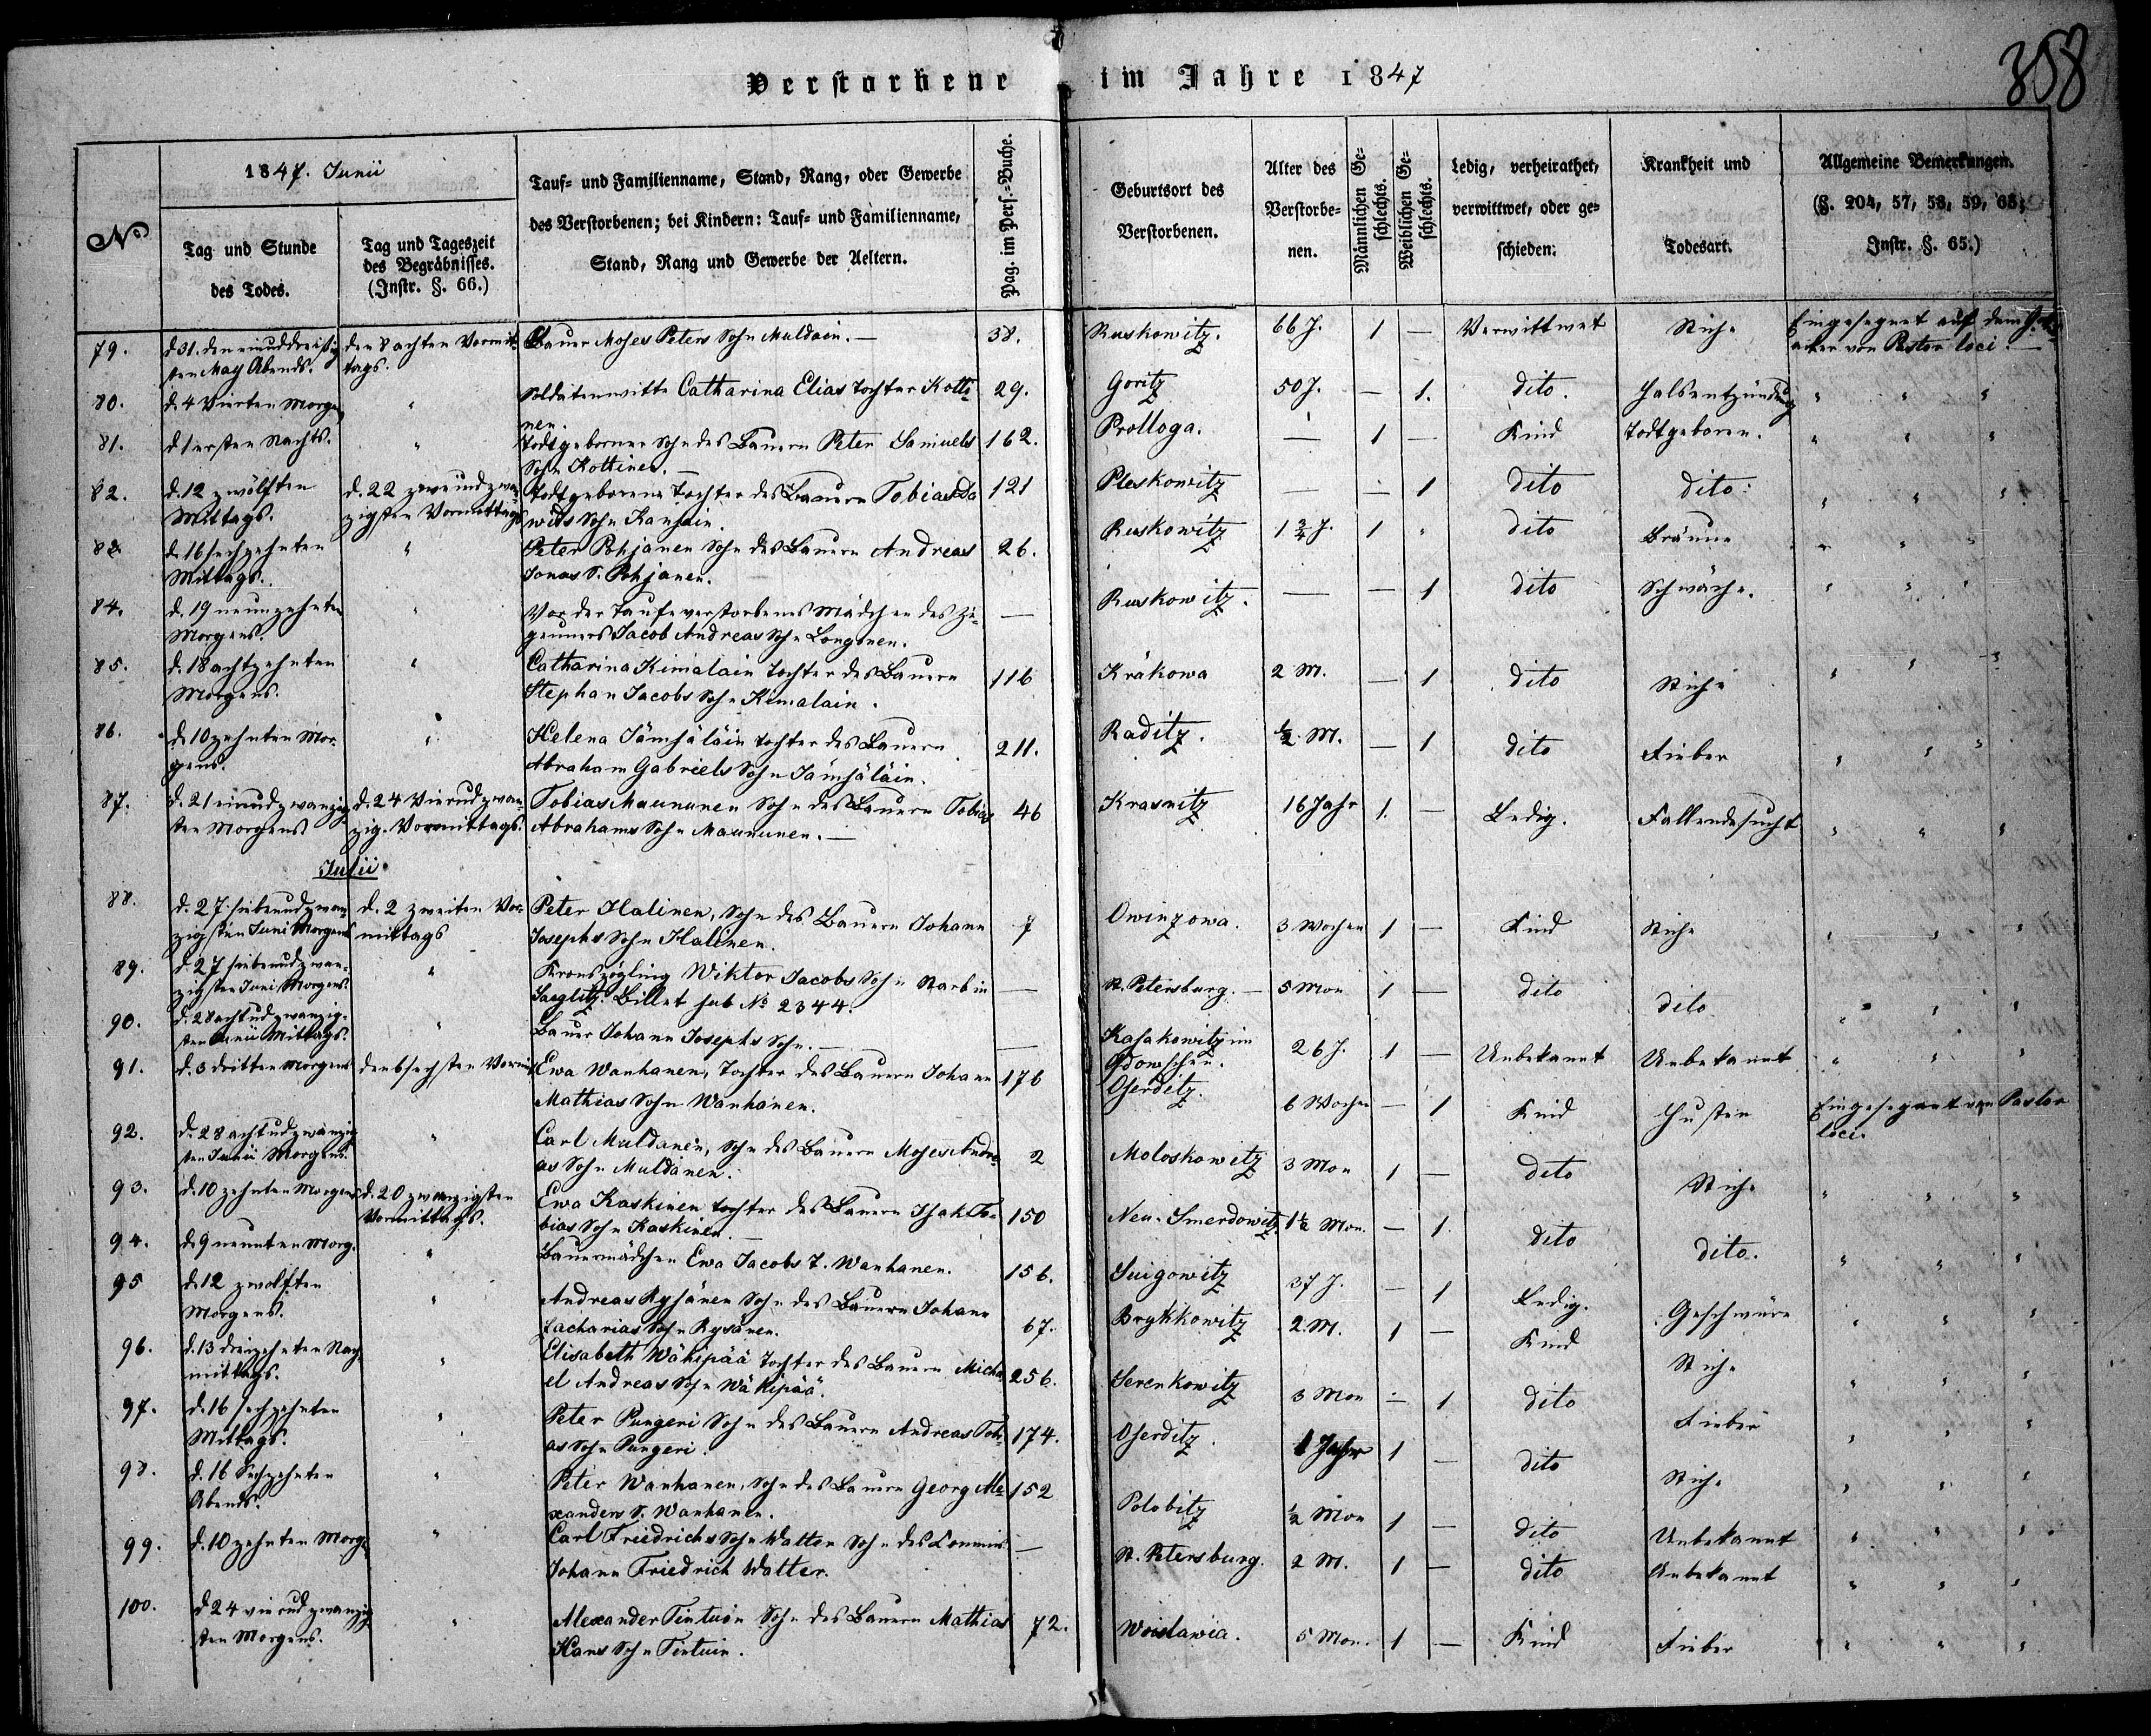 Verstorbene im Jahre 1847
358
No
1847. Junii
Tag und Stunde des Todes.
Tag und Tageszeit des Begräbnisses. (Instr. §. 66.)
Tauf= und Familienname, Stand, Rang, oder Gewerbe
des Verstorbenen; bei Kindern: Tauf= und Familienname,
Stand, Rang und Gewerbe der Aeltern.
Pag. im Pers.=Buche.
Geburtsort des Verstorbenen.
Alter des Verstorbe=nen.
Männlichen Ge=schlechts.
Weiblichen Ge=schlechts.
Ledig, verheirathet, verwittwet, oder ge=schieden.
Krankheit und Todesart.
Allgemeine Bemerkungen. (§. 204, 57, 58, 59, 63; Instr. §. 65.)
79. d 31. den einunddreißig den 8 achten Vormit= Bauer Moses Peters Sohn Muldain. — 38. Ruskowitz. 66 J. 1 — Verwittwet Stiche Eingesegnet auf dem
sten May Abends. tags. acker von Pastor loci. —
80. d. 4 Vierten Morgen " Catharina Elias Tochter Kotti= 29. Goritz 50 J. — 1. dito. Halsentzündung " " "
nen.
81. d 1 ersten Nachts. " Todtgeborner Sohn des Bauern Peter Samuels 162. Prologa. — 1 — Kind Todtgeboren. " " "
Sohn Kottinen. —
82. d. 12 zwölften d. 22 zweiundzwan= Todtgeborene Tochter des Bauern Tobias Da 121 Pleskowitz — — 1 dito dito " " "
Mittags. zigsten Vormittags wids Sohn
83. d. 16 sechzehnten " Peter Pohjanen Sohn des Bauern Andreas 26. Ruskowitz 1 3/4 J. 1 " dito Bräune " " "
Mittags. Jonas S. Pohjanen.
84. d. 19 neunzehnten " Vor der Taufe verstorbenes Mädchen des Zi= — Ruskowitz. — — 1 dito Schwäche. " " "
Morgens. geuners Jacob Andreas Sohn Longonen.
85. d. 18 achtzehnten " Catharina Kimalain Tochter des Bauern 116 Kräkowa 2 M. — 1 dito Stiche " " "
Morgens. Stephan Jacobs Sohn Kimalain.
86. d. 10 zehnten Mor= " Helena Jämjäläin Tochter des Bauern 211. Raditz. 1/2 M. — 1 dito Fieber " " "
gens. Abraham Gabriels Sohn Jämjäläin.
87. d. 21 einundzwanzig d. 24 Vierundzwan= Tobias Maununen Sohn des Bauern Tobias 46 Krasnitz 16 Jahr 1. — Ledig. Fallendesucht " " "
sten Morgens zig. Vormittags. Abrahams Sohn Maununen. —
Julii
88. d. 27 siebenundzwan= d. 2 zweiten Vor= Peter Halinen, Sohn des Bauern Johann 7 Owinzowa. 3 Wochen 1 — Kind Stiche " " "
zigsten Juni Morgens mittags Josephs Sohn Halinen.
89. d. 27 siebenundzwan= " Kronszögling Wiktor Jacobs Sohn — St. Petersburg. — 5 Mon 1 — dito dito " " "
zigsten Juni Morgens. Billet sub No 2344.
90. d. 28 achtundzwanzig= " Bauer Johann Josephs Sohn. — — Kasakowitz im 26 J. 1 — Unbekannt Unbekannt " " "
sten Junii Mittags. Gdowschen.
91. d. 3 dritten Morgens den 6 sechsten Vormit Ewa Wanhanen, Tochter des Bauern Johann 176 Oserditz. 6 Wochen — 1 Kind Husten Eingesegnet von Pastor
Mathias Sohn Wanhanen. loci.
92. d. 28 achtundzwanzig " Carl Muldanen, Sohn des Bauern Moses Andre= 2 Moloskowitz 3 Mon 1 — dito Stiche " " "
sten Junii Morgens. as Sohn Muldanen.
93. d. 10 zehnten Morgens d. 20 zwanzigsten Ewa Kaskinen Tochter des Bauern Isak To= 150 Neu-Smerdowitz. 1 1/2 Mon. — 1 dito dito. " " "
Vormittags. bias Sohn Kaskinen. —
94. d. 9 neunten Morg. " Bauermädchen Ewa Jacobs T. Wanhanen. 156. Suigowitz 37 J. — 1 Ledig. Geschwüre " " "
95 d. 12 zwölften " Andreas Rysänen Sohn des Bauern Johann 67. Brykkowitz 2. M. 1 — Kind Stiche " " "
Morgens. Zacharias Sohn Rysänen.
96. d. 13 dreizehnten Nach= " Elisabeth Wäkipää Tochter des Bauern Micha= 256. Serenkowitz 3 Mon — 1 dito Fieber " " "
mittags. el Andreas Sohn Wäkipää.
97. d. 16 sechzehnten " Peter Pungeri Sohn des Bauern Andreas Tobi= 174. Oserditz. 1 Jahr 1 — dito Stiche " " "
Mittags. as Sohn Pungeri.
98. d. 16 Sechzehnten " Peter Wanhanen, Sohn des Bauern Georg Ale= 152 Polobitz 1/2 Mon 1 — dito Unbekannt " " "
Abends. xanders S. Wanhanen.
99. d. 10 zehnten Morg. " Carl Friedrichs Sohn Walter Sohn des Commis — St. Petersburg. 2 M. 1 — dito Unbekannt " " "
Johann Friedrich Walter.
100. d 24 vierundzwanzig " Alexander Tintuin Sohn des Bauern Mathias 72. Woislawia. 5 Mon. 1 — Kind Fieber " " "
sten Morgens. Hans Sohn Tintuin.